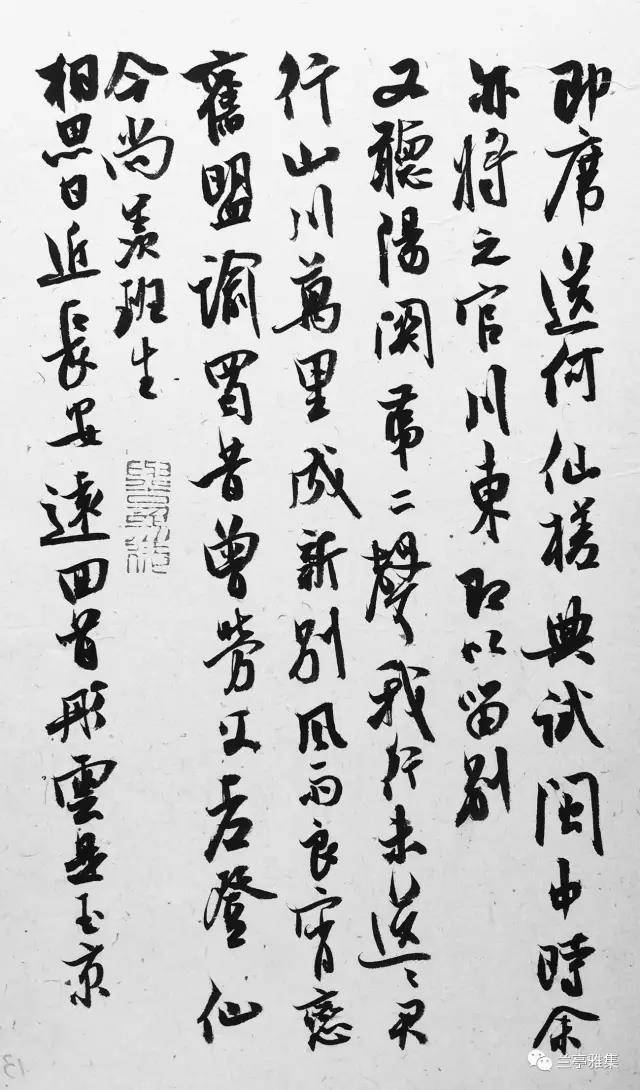 即席送何仙槎典試閩中時余
亦將之官川東即以留別
又聽陽關第二聲我行未送〻君
行山川萬里成新別風雨良宵戀
舊盟諭蜀昔曾勞父老登仙
今尚羨班生
相思日近長安遠回首彤雲是玉京
兰亭雅集